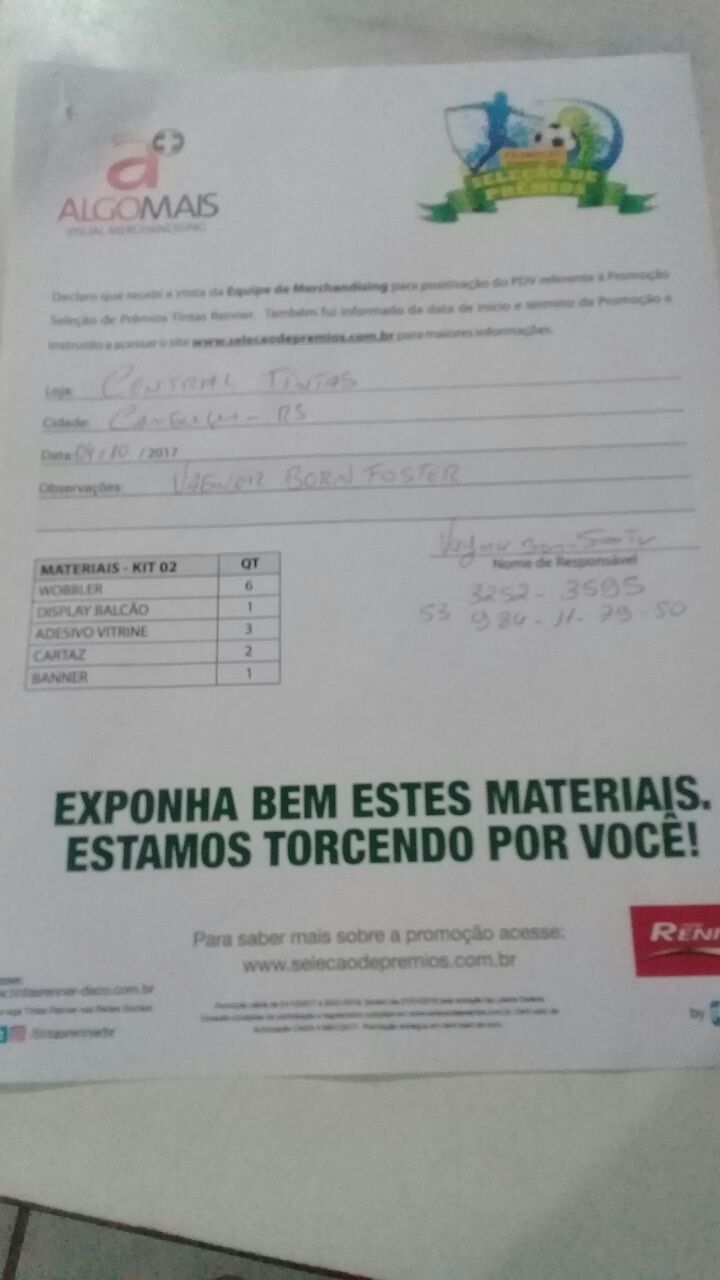 ALGOMAIS
VISUAL MERCHANDISING
PROMOÇÃO
SELEÇÃO DE
PRÊMIOS
Declaro que recebi a visita da Equipe de Merchandising para positivação do PDV referente à Promoção
Seleção de Prêmios Tintas Renner. Também fui informado da data de início e término da Promoção e
instruído a acessar o site www.selecaodepremios.com.br para maiores informações.
Loja: CENTRAL TINTAS
Cidade: - RS
Data: 04/10/2017
Observações: VAGNER BORN FOSTER
Nome de Responsável
3252-3595
53 984-11-79-50
MATERIAIS - KIT 02 QT
WOBBLER 6
DISPLAY BALCÃO 1
ADESIVO VITRINE 3
CARTAZ 2
BANNER 1
EXPONHA BEM ESTES MATERIAIS.
ESTAMOS TORCENDO POR VOCÊ!
Para saber mais sobre a promoção acesse:
www.selecaodepremios.com.br
RENN
.tintasrenner-deco.com.br
/tintasrennerbr
by